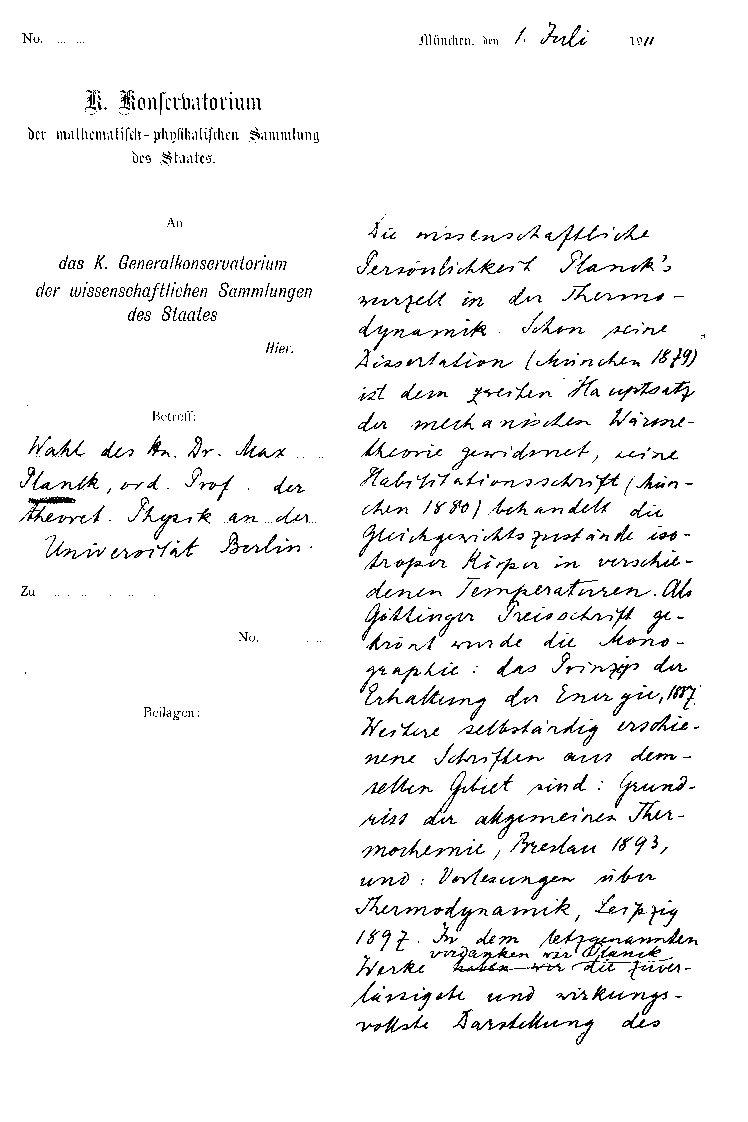 No. .... ...
München, den 1. Juli 1911
K. Konservatorium
der mathematisch-physikalischen Sammlung
des Staates.
An
das K. Generalkonservatorium
der wissenschaftlichen Sammlungen
des Staates
Hier.
Betreff:
Wahl des Hn. Dr. Max
Planck, ord. Prof. der
theoret. Physik an der
Universität Berlin.
Zu
No.
Beilagen:
Die wissenschaftliche
Persönlichkeit Planck's
wurzelt in der Thermo-
dynamik. Schon seine
Dissertation (München 1879)
ist dem zweiten Hauptsatz
der mechanischen Wärme-
theorie gewidmet, seine
Habilitationsschrift (Mün-
chen 1880) behandelt die
Gleichgewichtszustände iso-
troper Körper in verschie-
denen Temperaturen. Als
Göttinger Preisschrift ge-
krönt wurde die Mono-
graphie: das Prinzip der
Erhaltung der Energie, 1887.
Weitere selbständig erschie-
nene Schriften aus dem-
selben Gebiet sind: Grund-
riss der allgemeinen Ther-
mochemie, Breslau 1893,
und: Vorlesungen über
Thermodynamik, Leipzig
1897. In dem letzgenannten
verdanken wir Planck
Werke haben wir die zuver-
lässigste und wirkungs-
vollste Darstellung des